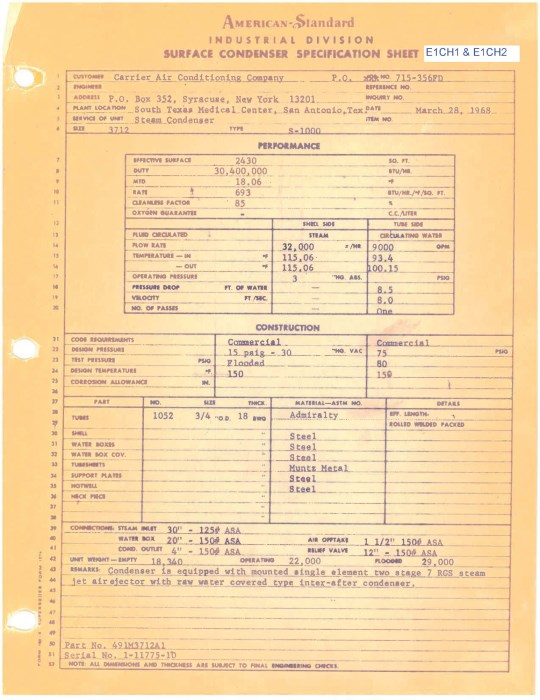 AMERICAN-Standard
INDUSTRIAL DIVISION
SURFACE CONDENSER SPECIFICATION SHEET E1CH1 & E1CH2
1 CUSTOMER Carrier Air Conditioning Company P.O. NO. 715-356FD
2 ENGINEER REFERENCE NO.
3 ADDRESS P.O. Box 352, Syracuse, New York 13201 INQUIRY NO.
4 PLANT LOCATION South Texas Medical Center, San Antonio, Tex. DATE March 28, 1968
5 SERVICE OF UNIT Steam Condenser ITEM NO.
6 SIZE 3712 TYPE S-1000
PERFORMANCE
7 EFFECTIVE SURFACE 2430 SQ. FT.
8 DUTY 30,400,000 BTU/HR.
9 MTD 18.06 °F
10 RATE 693 BTU/HR./°F/SQ. FT.
11 CLEANLINESS FACTOR 85 %
OXYGEN GUARANTEE - C.C./LITER
12 SHELL SIDE TUBE SIDE
13 FLUID CIRCULATED STEAM CIRCULATING WATER
14 FLOW RATE 32,000 #/HR 9000 GPM
15 TEMPERATURE — IN °F 115.06 93.4
16 — OUT °F 115.06 100.15
17 OPERATING PRESSURE 3 "HG. ABS. PSIG
18 PRESSURE DROP FT. OF WATER — 8.5
19 VELOCITY FT /SEC. — 8.0
20 NO. OF PASSES One
CONSTRUCTION
21 CODE REQUIREMENTS Commercial Commercial
22 DESIGN PRESSURE 15 psig - 30 "HG. VAC 75 PSIG
23 TEST PRESSURE PSIG Flooded 80
24 DESIGN TEMPERATURE °F 150 150
25 CORROSION ALLOWANCE IN.
27 PART NO. SIZE THICK. MATERIAL—ASTM NO. DETAILS
28 TUBES 1052 3/4 "O.D. 18 BWG Admiralty EFF. LENGTH-
29 ROLLED WELDED PACKED
30 SHELL Steel
31 WATER BOXES Steel
32 WATER BOX COV. Steel
33 TUBESHEETS Muntz Metal
34 SUPPORT PLATES Steel
35 HOTWELL Steel
36 NECK PIECE
37
38
39 CONNECTIONS: STEAM INLET 30" - 125# ASA
40 WATER BOX 20" - 150# ASA AIR OFFTAKE 1 1/2" 150# ASA
41 COND. OUTLET 4" - 150# ASA RELIEF VALVE 12" - 150# ASA
42 UNIT WEIGHT—EMPTY 18,340 OPERATING 22,000 FLOODED 29,000
43 REMARKS: Condenser is equipped with mounted single element two stage 7 RGS steam
44 jet air ejector with raw water covered type inter-after condenser.
45
46
47
48
49
50 Part No. 491M3712A1
51 Serial No. 1-11775-1D
52 NOTE: ALL DIMENSIONS AND THICKNESS ARE SUBJECT TO FINAL ENGINEERING CHECKS.